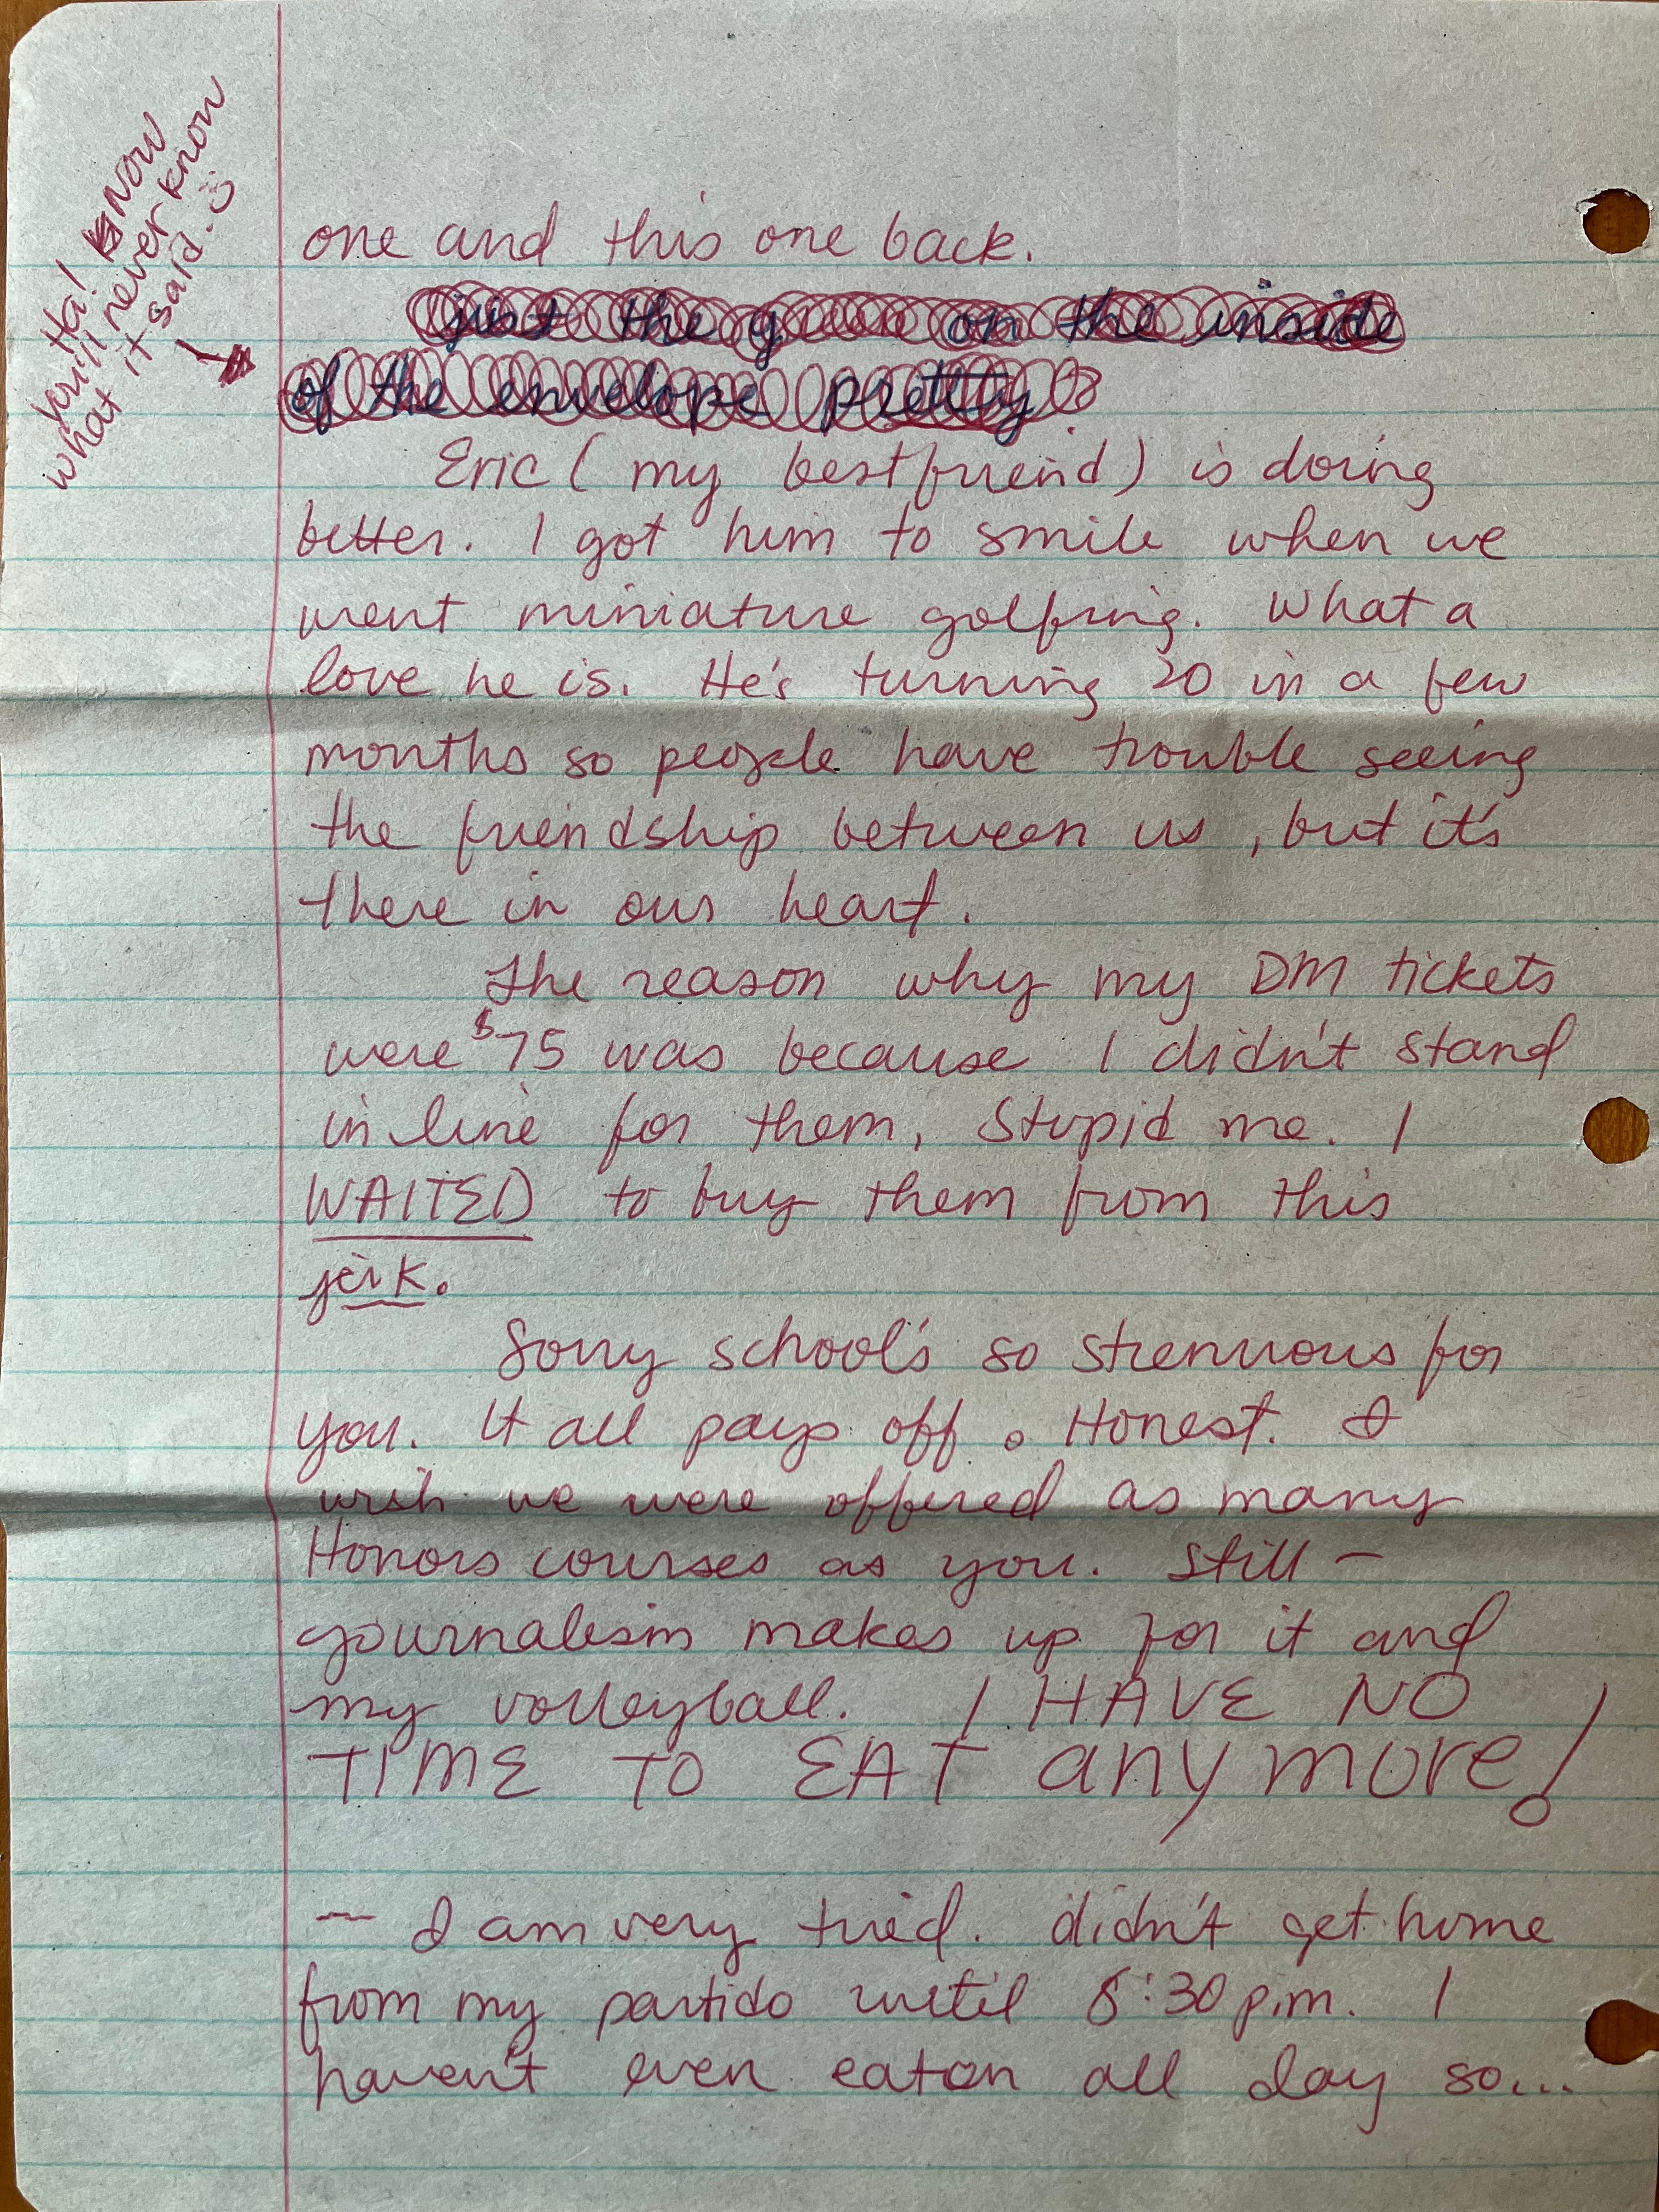 Ha! NOW
you'll never know
what it said.
one and this one back.
just the green on the inside
of the envelope pretty?
Eric (my bestfriend) is doing
better. I got him to smile when we
went miniature golfing. What a
love he is. He's turning 20 in a few
months so people have trouble seeing
the friendship between us, but it's
there in our heart.
The reason why my DM tickets
were $75 was because I didn't stand
in line for them, Stupid me. I
WAITED to buy them from this
jerk.
Sorry school's so strenuous for
you. It all pays off. Honest. I
wish we were offered as many
Honors courses as you. Still -
journalism makes up for it and
my volleyball. I HAVE NO
TIME TO EAT anymore!
- I am very tired. didn't get home
from my partido until 8:30 p.m. I
haven't even eaton all day so...